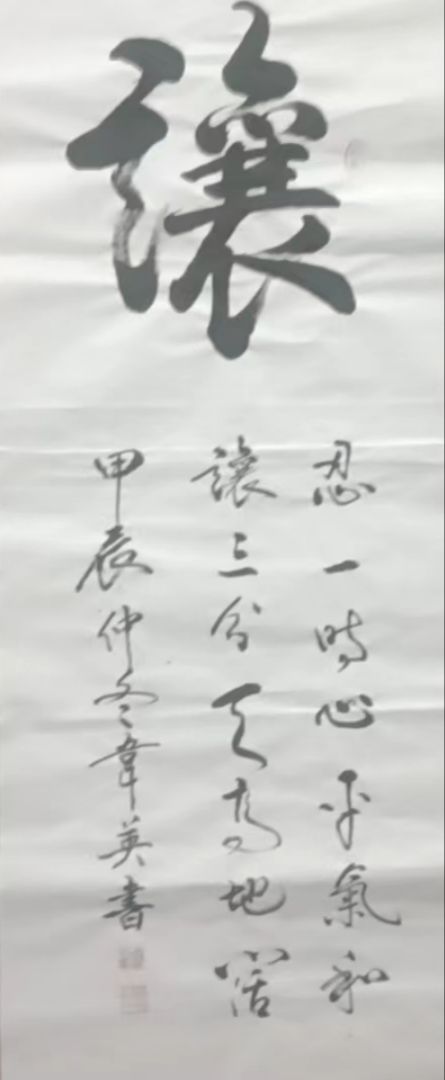 讓
忍一時心平氣和
讓三分天高地闊
甲辰仲冬韋英書